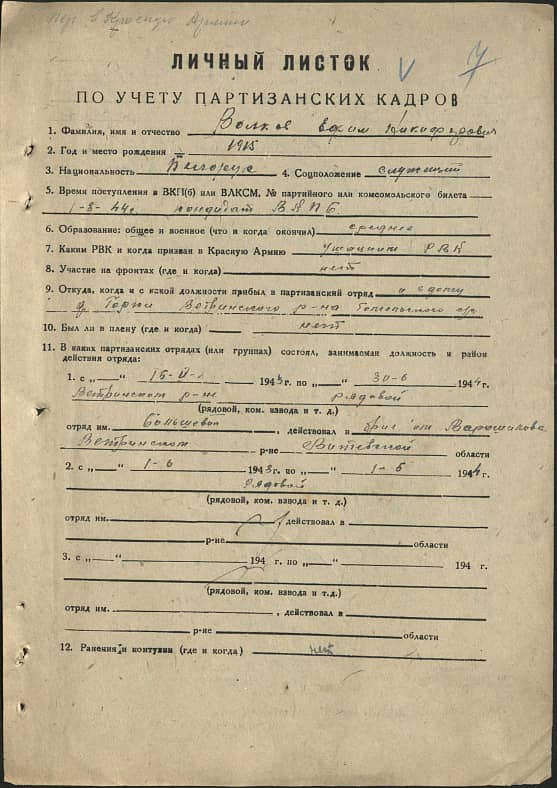 Пер. в Красную Армию
V 7
ЛИЧНЫЙ ЛИСТОК
ПО УЧЕТУ ПАРТИЗАНСКИХ КАДРОВ
1. Фамилия, имя и отчество Волков Ефим Никифорович
2. Год и место рождения 1915
3. Национальность Белорус 4. Соцположение служащий
5. Время поступления в ВКП(б) или ВЛКСМ, № партийного или комсомольского билета
1-8-44г. кандидат ВКПб
6. Образование: общее и военное (что и когда окончил) среднее
7. Каким РВК и когда призван в Красную Армию Ушацким РВК
8. Участие на фронтах (где и когда) нет
9. Откуда, когда и с какой должности прибыл в партизанский отряд
д. Ветринского р-на
10. Был ли в плену (где и когда) нет
11. В каких партизанских отрядах (или группах) состоял, занимаемая должность и район
действия отряда:
1. с „ —" 1943 г. по „ —" 30-6 1944 г.
Ветринском р-не рядовой
(рядовой, ком. взвода и т. д.)
отряд им. , действовал в бриг им Варашилова
Ветринском р-не Витебской области
2. с „ —" 1-6 1943 г. по „ —" 1-6 1944 г.
Рядовой
(рядовой, ком. взвода и т. д.)
отряд им. действовал в
р-не области
3. с „ —" 194 г. по „ —" 194 г.
(рядовой, ком. взвода и т.д.)
отряд им. , действовал в
р-не области
12. Ранения и контузии (где и когда) нет